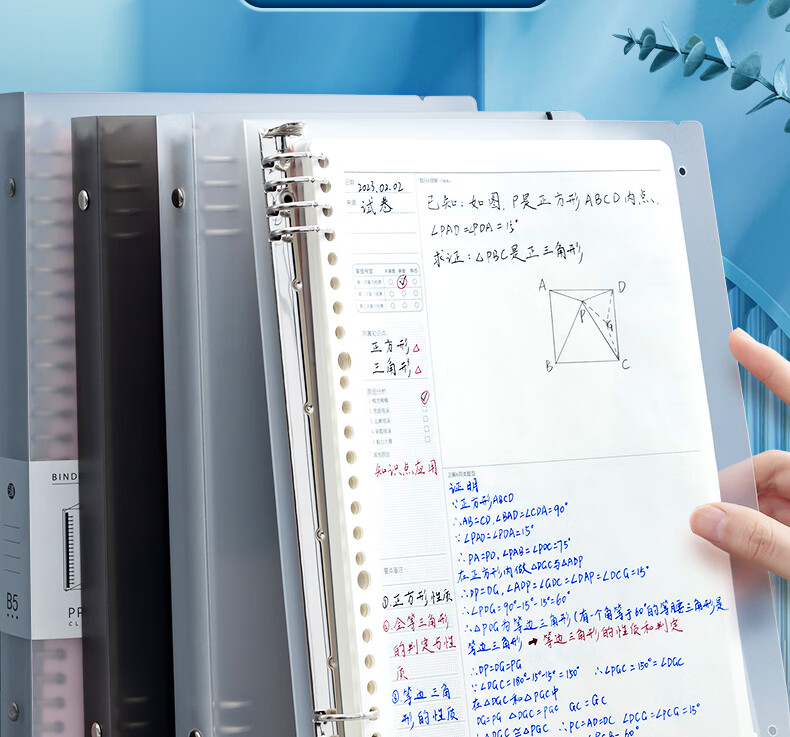 日期
2023.02.02
来源
试卷
已知：如图，P是正方形ABCD内点、
∠PAD=∠PDA=15°
求证：△PBC是正三角形
A
D
P
G
B
C
所属知识点
正方形△
三角形△
知识点应用
要点备注：
①.正方形性质
②.全等三角形
的判定与性
质
③等边三角
形的性质
证明
∵正方形ABCD
∴AB=CD,∠BAD=∠CDA=90°
∵∠PAD=∠PDA=15°
∴PA=PD,∠PAB=∠PDC=75°
在正方形内做△DGC与△ADP
∴DP=DG,∠ADP=∠GDC=∠DAP=∠DCG=15°
∴∠PDG=90°-15°-15°=60°
∴△PDG为等边三角形(有一个角等于60°的等腰三角形是
等边三角形 → 等边三角形的性质和判定
∴DP=DG=PG
∵∠DGC=180°-15°-15°=150° ∴∠PGC=150°=∠DGC
在△DGC和△PGC中
DG=PG ∠DGC=∠PGC GC=GC
∴△DGC≌△PGC ∴PC=AD=DC ∠DCG=∠PCG=15°
BIND
B5